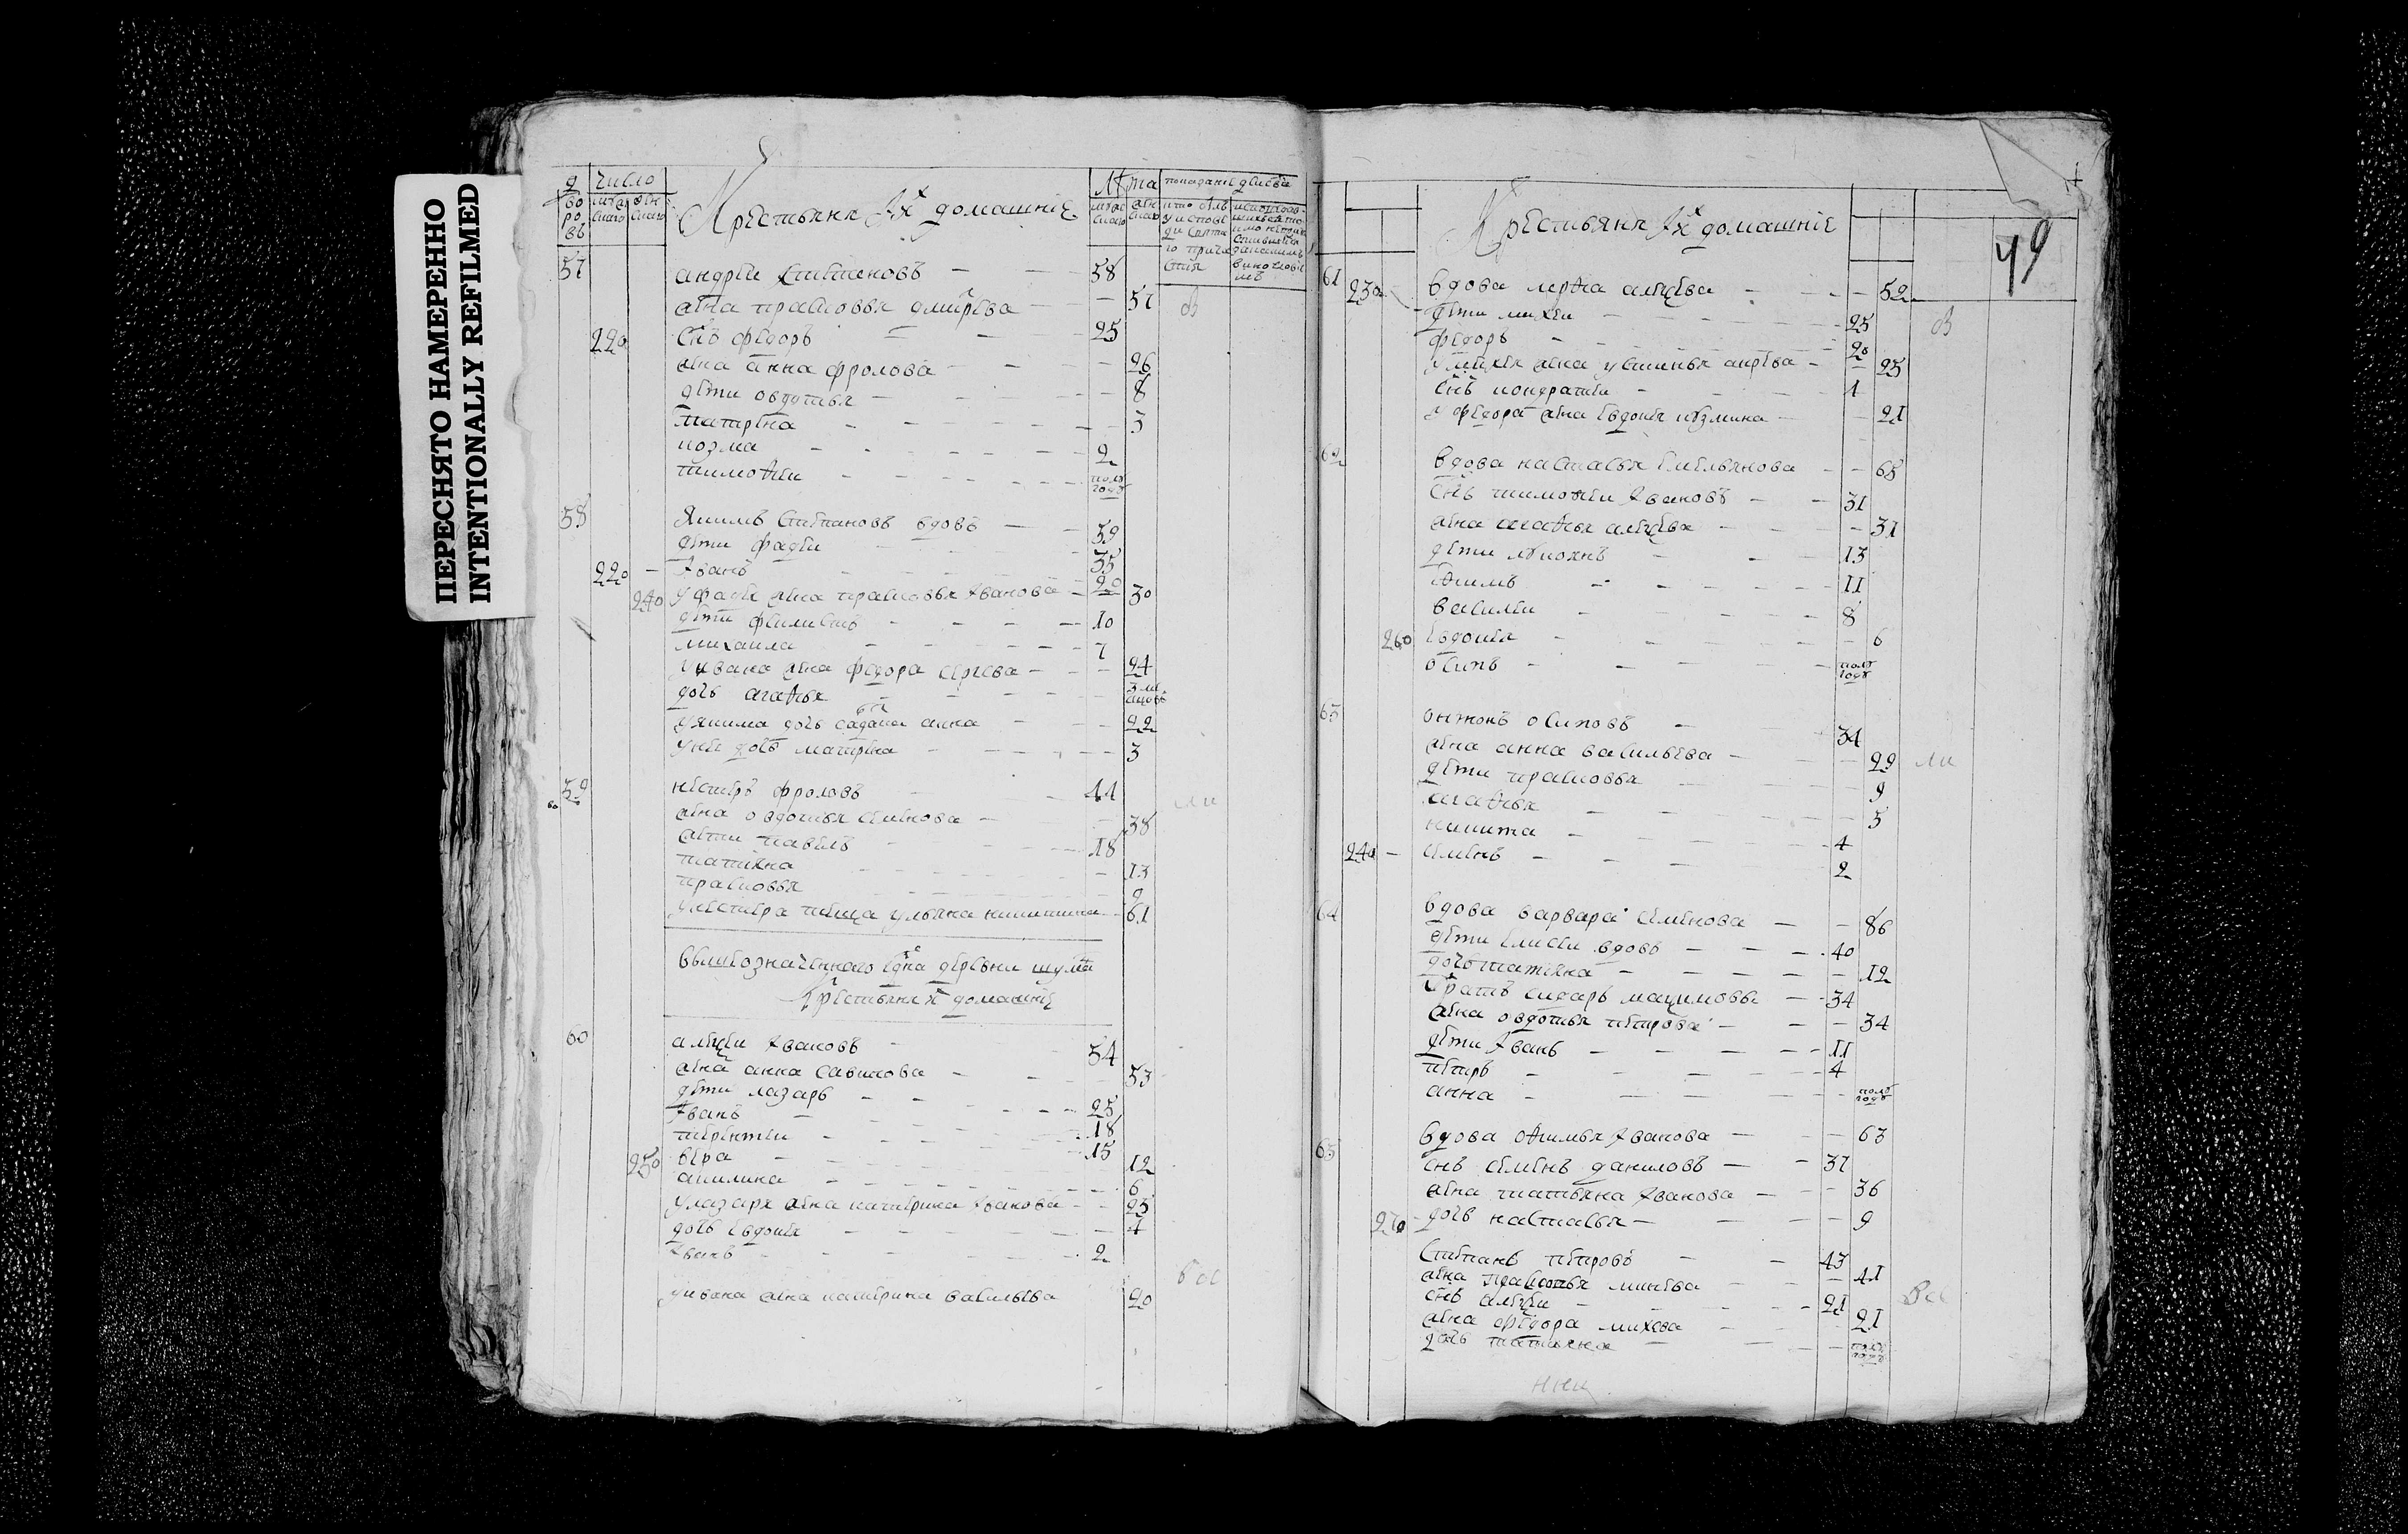 ПЕРЕСНЯТО НАМЕРЕННО
INTENTIONALLY REFILMED
число
Крестьяня Iх домашние
лѣта
57 андреи степановъ 58
жена прасковья 57
220 снъ федоръ 25
жена анна фролова 26
дети овдотья 8
матрена 3
козма 2
тимофеи полъ году
58 якимъ степановъ вдовъ 59
дети фадеи 35
220 Iванъ 20
240 у фадея жена прасковья Iванова 30
дети филипъ 10
михаила 7
у ивана жена федора 24
дочь агафья 3
у якима дочь анна 22
у неи дочь матрена 3
59 нестеръ фроловъ 44
жена овдотья семенова 38
дети павелъ 18
татияна 13
прасковья 9
у нестера теща ульяна никитина 61
вышеозначеннаго деревни
Крестьяня Iх домашние
60 алеѯеи Iвановъ 54
жена анна савинова 53
дети лазарь 25
Iванъ 18
терентеи 15
250 вера 12
акилина 6
у лазаря жена катерина Iванова 25
дочь евдокея 4
Iванъ 2
у ивана жена катерина васильева 20
49
Крестьяня Iх домашние
61 230 вдова марфа алеѯева 52
дети михеи 25
федоръ 20
у михея жена устинья 25
снъ кондратеи 1
у федора жена евдокея кузмина 21
62 вдова настасья емельянова 68
снъ тимофеи Iвановъ 31
жена агафья алеѯева 31
дети 13
ефимъ 11
василеи 8
260 евдокея 6
осипъ полъ году
63 онтонъ осиповъ 34
жена анна васильева 29
дети прасковья 9
агафья 5
никита 4
240 семенъ 2
64 вдова варвара семенова 86
дети елисеи вдовъ 40
дочь татияна 12
братъ сидаръ маѯимовъ 34
жена овдотья петрова 34
дети Iванъ 11
петръ 4
анна полъ году
65 вдова офимья Iванова 63
снъ семенъ даниловъ 37
жена татьяна Iванова 36
270 дочь настасья 9
степанъ петровъ 43
жена минеева 41
снъ алеѯеи 21
жена федора михеева 21
дочь татьяна полъ году